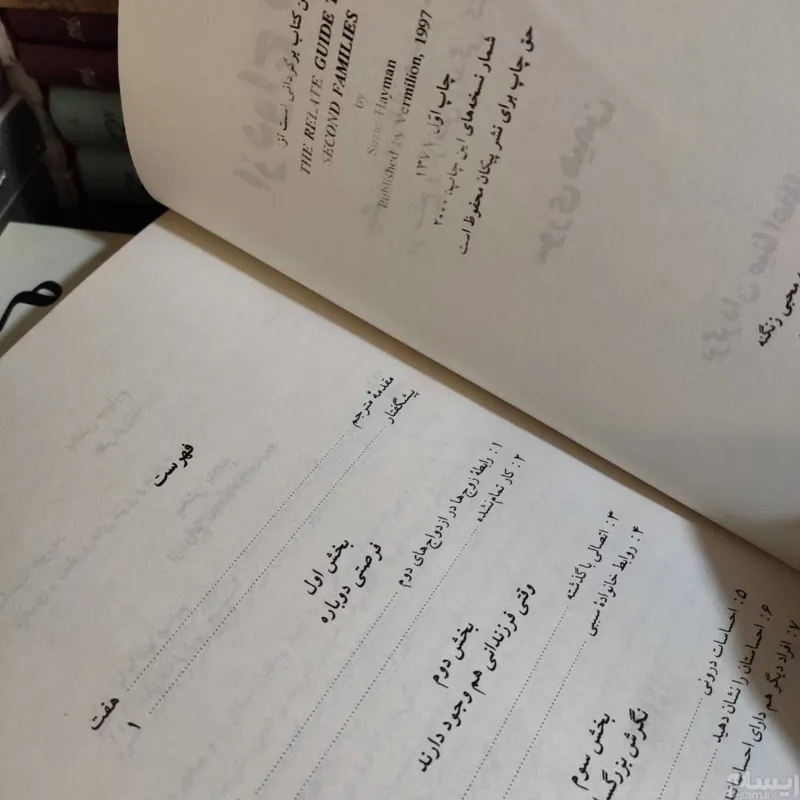 ن کتاب برگردانی است از
THE RELATE GUIDE
SECOND FAMILIES
by
Suzie Hayman
Published by Vermilion, 1997
چاپ اوّل ۱۳۷۹
شمار نسخه‌های این چاپ: ۲۰۰۰
حق چاپ برای نشر پیکان محفوظ است
محبی زنگنه
فهرست
مقدمهٔ مترجم هفت
پیشگفتار ۱
بخش اول
فرصتی دوباره
۱: رابطهٔ زوج‌ها در ازدواج‌های دوم
۲: کار تمام نشده
بخش دوم
وقتی فرزندانی هم وجود دارند
۳: اتصالی با گذشته
۴: روابط خانوادهٔ سببی
بخش سوم
نگرش بزرگس
۵: احساسات درونی
۶: احساستان را نشان دهید
۷: افراد دیگر هم دارای احساسات
ایسام